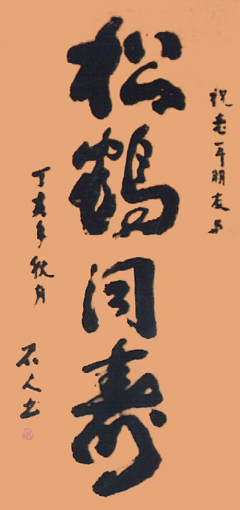 祝老年朋友
松鶴同寿
丁亥年秋月
石人书